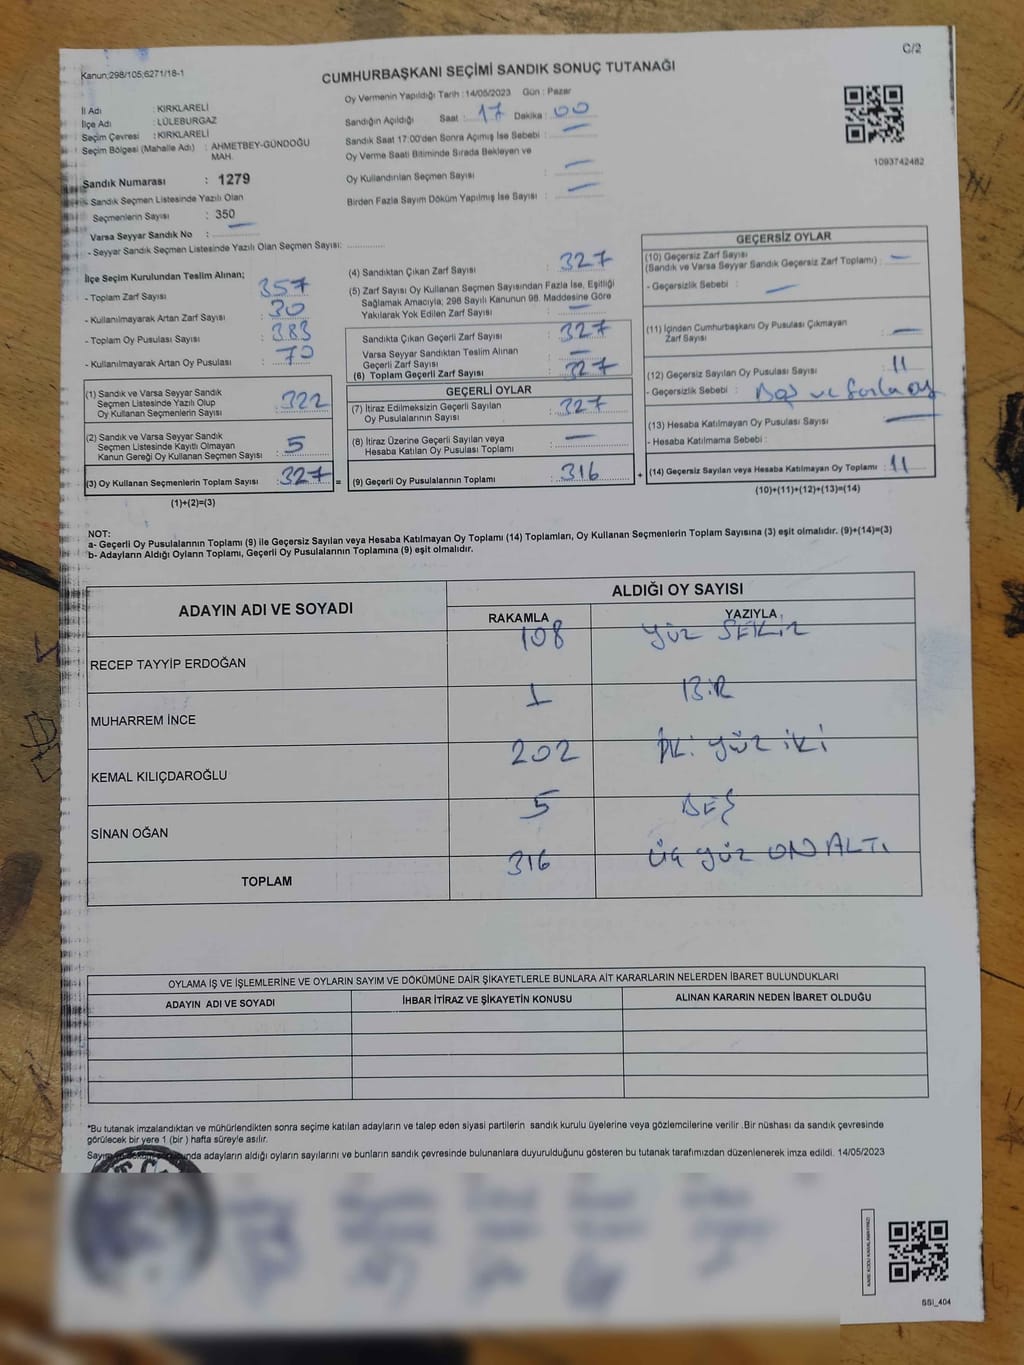 C/2
Kanun;298/105;6271/18-1
CUMHURBAŞKANI SEÇİMİ SANDIK SONUÇ TUTANAĞI
İl Adı : KIRKLARELİ
İlçe Adı : LÜLEBURGAZ
Seçim Çevresi : KIRKLARELİ
Seçim Bölgesi (Mahalle Adı) : AHMETBEY-GÜNDOĞU
MAH.
Sandık Numarası : 1279
- Sandık Seçmen Listesinde Yazılı Olan
Seçmenlerin Sayısı : 350
Varsa Seyyar Sandık No : —
- Seyyar Sandık Seçmen Listesinde Yazılı Olan Seçmen Sayısı: ............
Oy Vermenin Yapıldığı Tarih : 14/05/2023 Gün : Pazar
Sandığın Açıldığı Saat : 17 Dakika : 00
Sandık Saat 17:00'den Sonra Açımış İse Sebebi : —
Oy Verme Saati Bitiminde Sırada Bekleyen ve
Oy Kullandırılan Seçmen Sayısı : —
Birden Fazla Sayım Döküm Yapılmış İse Sayısı : —
1093742482
İlçe Seçim Kurulundan Teslim Alınan;
- Toplam Zarf Sayısı : 357
- Kullanılmayarak Artan Zarf Sayısı : 30
- Toplam Oy Pusulası Sayısı : 383
- Kullanılmayarak Artan Oy Pusulası : 70
(1) Sandık ve Varsa Seyyar Sandık
Seçmen Listesinde Yazılı Olup
Oy Kullanan Seçmenlerin Sayısı : 322
(2) Sandık ve Varsa Seyyar Sandık
Seçmen Listesinde Kayıtlı Olmayan
Kanun Gereği Oy Kullanan Seçmen Sayısı : 5
(3) Oy Kullanan Seçmenlerin Toplam Sayısı : 327 =
(1)+(2)=(3)
(4) Sandıktan Çıkan Zarf Sayısı : 327
(5) Zarf Sayısı Oy Kullanan Seçmen Sayısından Fazla İse, Eşitliği
Sağlamak Amacıyla; 298 Sayılı Kanunun 98. Maddesine Göre
Yakılarak Yok Edilen Zarf Sayısı : —
Sandıkta Çıkan Geçerli Zarf Sayısı : 327
Varsa Seyyar Sandıktan Teslim Alınan
Geçerli Zarf Sayısı : —
(6) Toplam Geçerli Zarf Sayısı : 327
GEÇERLİ OYLAR
(7) İtiraz Edilmeksizin Geçerli Sayılan
Oy Pusulalarının Sayısı : 327
(8) İtiraz Üzerine Geçerli Sayılan veya
Hesaba Katılan Oy Pusulası Toplamı : —
(9) Geçerli Oy Pusulalarının Toplamı : 316 +
GEÇERSİZ OYLAR
(10) Geçersiz Zarf Sayısı
(Sandık ve Varsa Seyyar Sandık Geçersiz Zarf Toplamı) : —
- Geçersizlik Sebebi : —
(11) İçinden Cumhurbaşkanı Oy Pusulası Çıkmayan
Zarf Sayısı : —
(12) Geçersiz Sayılan Oy Pusulası Sayısı : 11
- Geçersizlik Sebebi : Boş ve fazla oy
(13) Hesaba Katılmayan Oy Pusulası Sayısı : —
- Hesaba Katılmama Sebebi :
(14) Geçersiz Sayılan veya Hesaba Katılmayan Oy Toplamı : 11
(10)+(11)+(12)+(13)=(14)
NOT:
a- Geçerli Oy Pusulalarının Toplamı (9) ile Geçersiz Sayılan veya Hesaba Katılmayan Oy Toplamı (14) Toplamları, Oy Kullanan Seçmenlerin Toplam Sayısına (3) eşit olmalıdır. (9)+(14)=(3)
b- Adayların Aldığı Oyların Toplamı, Geçerli Oy Pusulalarının Toplamına (9) eşit olmalıdır.
ADAYIN ADI VE SOYADI ALDIĞI OY SAYISI
RAKAMLA YAZIYLA
RECEP TAYYİP ERDOĞAN 108 YÜZ SEKİZ
MUHARREM İNCE 1 BİR
KEMAL KILIÇDAROĞLU 202 İKİ YÜZ İKİ
SİNAN OĞAN 5 BEŞ
TOPLAM 316 ÜÇ YÜZ ON ALTI
OYLAMA İŞ VE İŞLEMLERİNE VE OYLARIN SAYIM VE DÖKÜMÜNE DAİR ŞİKAYETLERLE BUNLARA AİT KARARLARIN NELERDEN İBARET BULUNDUKLARI
ADAYIN ADI VE SOYADI İHBAR İTİRAZ VE ŞİKAYETİN KONUSU ALINAN KARARIN NEDEN İBARET OLDUĞU
*Bu tutanak imzalandıktan ve mühürlendikten sonra seçime katılan adayların ve talep eden siyasi partilerin sandık kurulu üyelerine veya gözlemcilerine verilir .Bir nüshası da sandık çevresinde
görülecek bir yere 1 (bir ) hafta süreyle asılır.
adayların aldığı oyların sayılarını ve bunların sandık çevresinde bulunanlara duyurulduğunu gösteren bu tutanak tarafımızdan düzenlenerek imza edildi. 14/05/2023
SSI_404